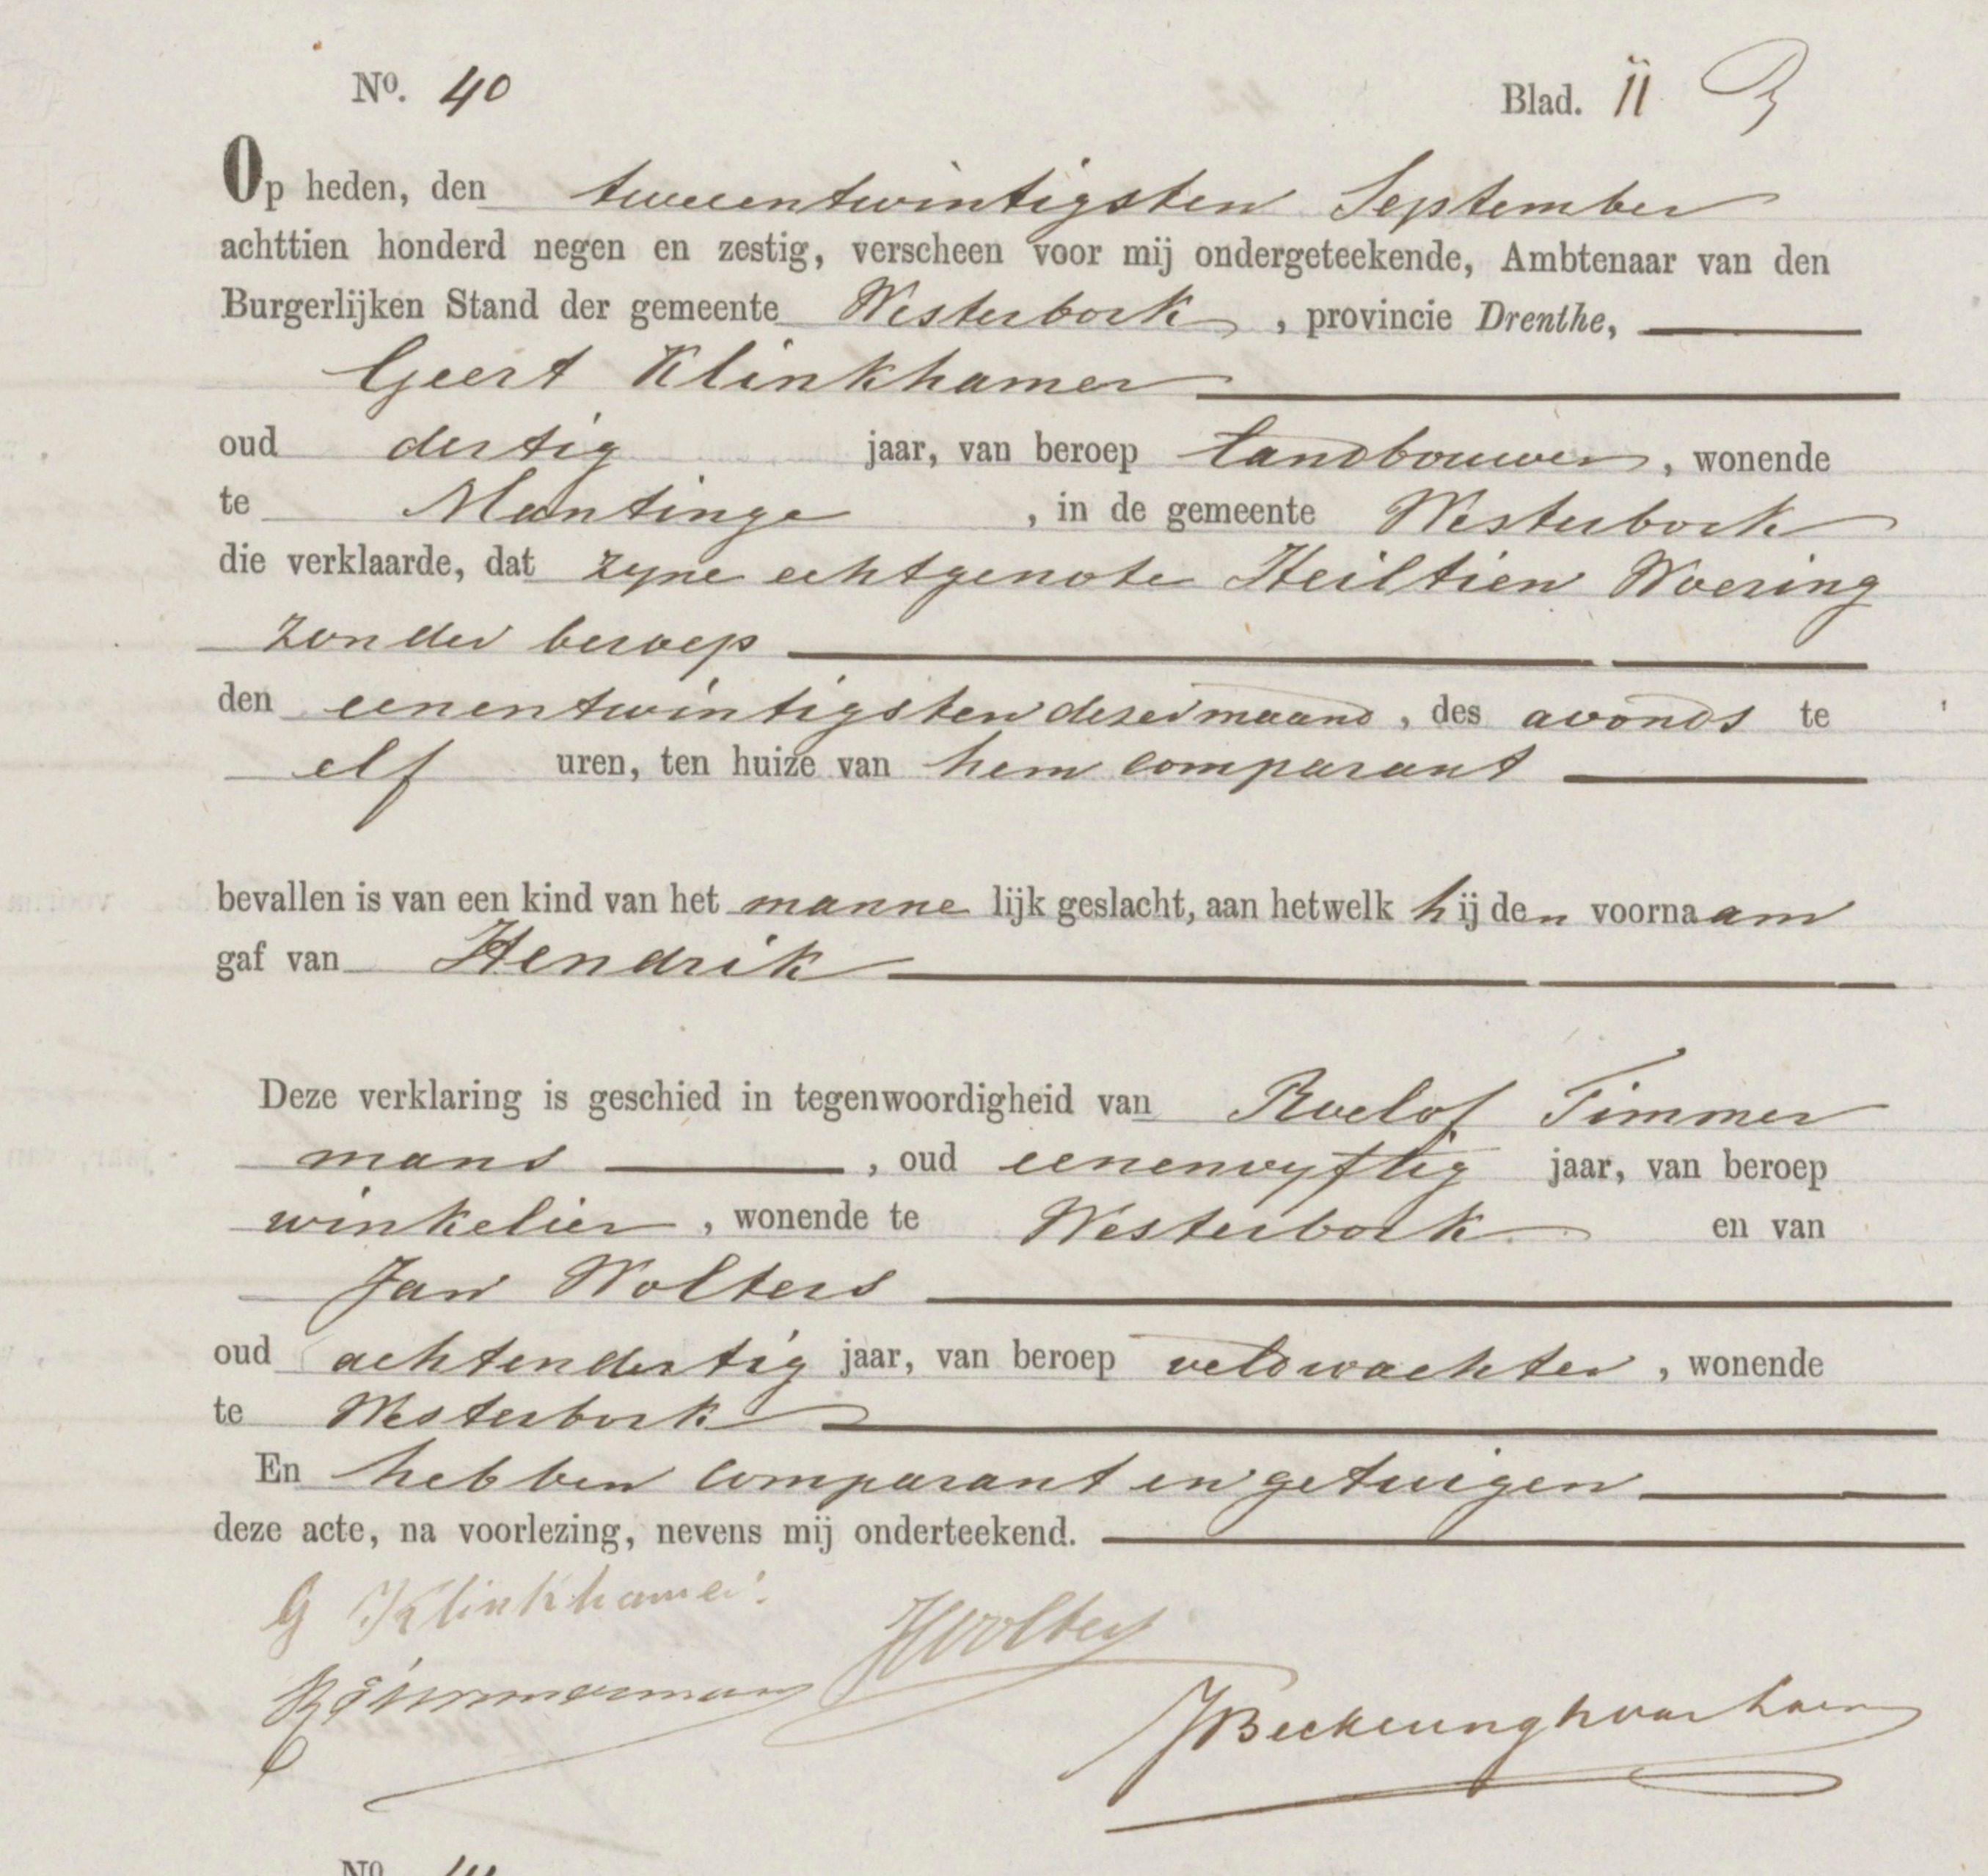 No. 40 Blad. 11
Op heden, den tweeentwintigsten September
achttien honderd negen en zestig, verscheen voor mij ondergeteekende, Ambtenaar van den
Burgerlijken Stand der gemeente Westerbork, provincie Drenthe,
Geert Klinkhamer
oud dertig jaar, van beroep landbouwer, wonende
te Mantinge, in de gemeente Westerbork
die verklaarde, dat zyne echtgenote Heiltien Woering
zonder beroep
den eenentwintigsten dezer maand, des avonds te
elf uren, ten huize van hem comparant
bevallen is van een kind van het mannelijk geslacht, aan hetwelk hij den voornaam
gaf van Hendrik
Deze verklaring is geschied in tegenwoordigheid van Roelof Timmer
mans, oud eenenvyftig jaar, van beroep
winkelier, wonende te Westerbork en van
Jan Wolters
oud achtendertig jaar, van beroep veldwachter, wonende
te Westerbork
En hebben comparant en getuigen
deze acte, na voorlezing, nevens mij onderteekend.
G Klinkhamer
JWolters
RTimmermans
No.